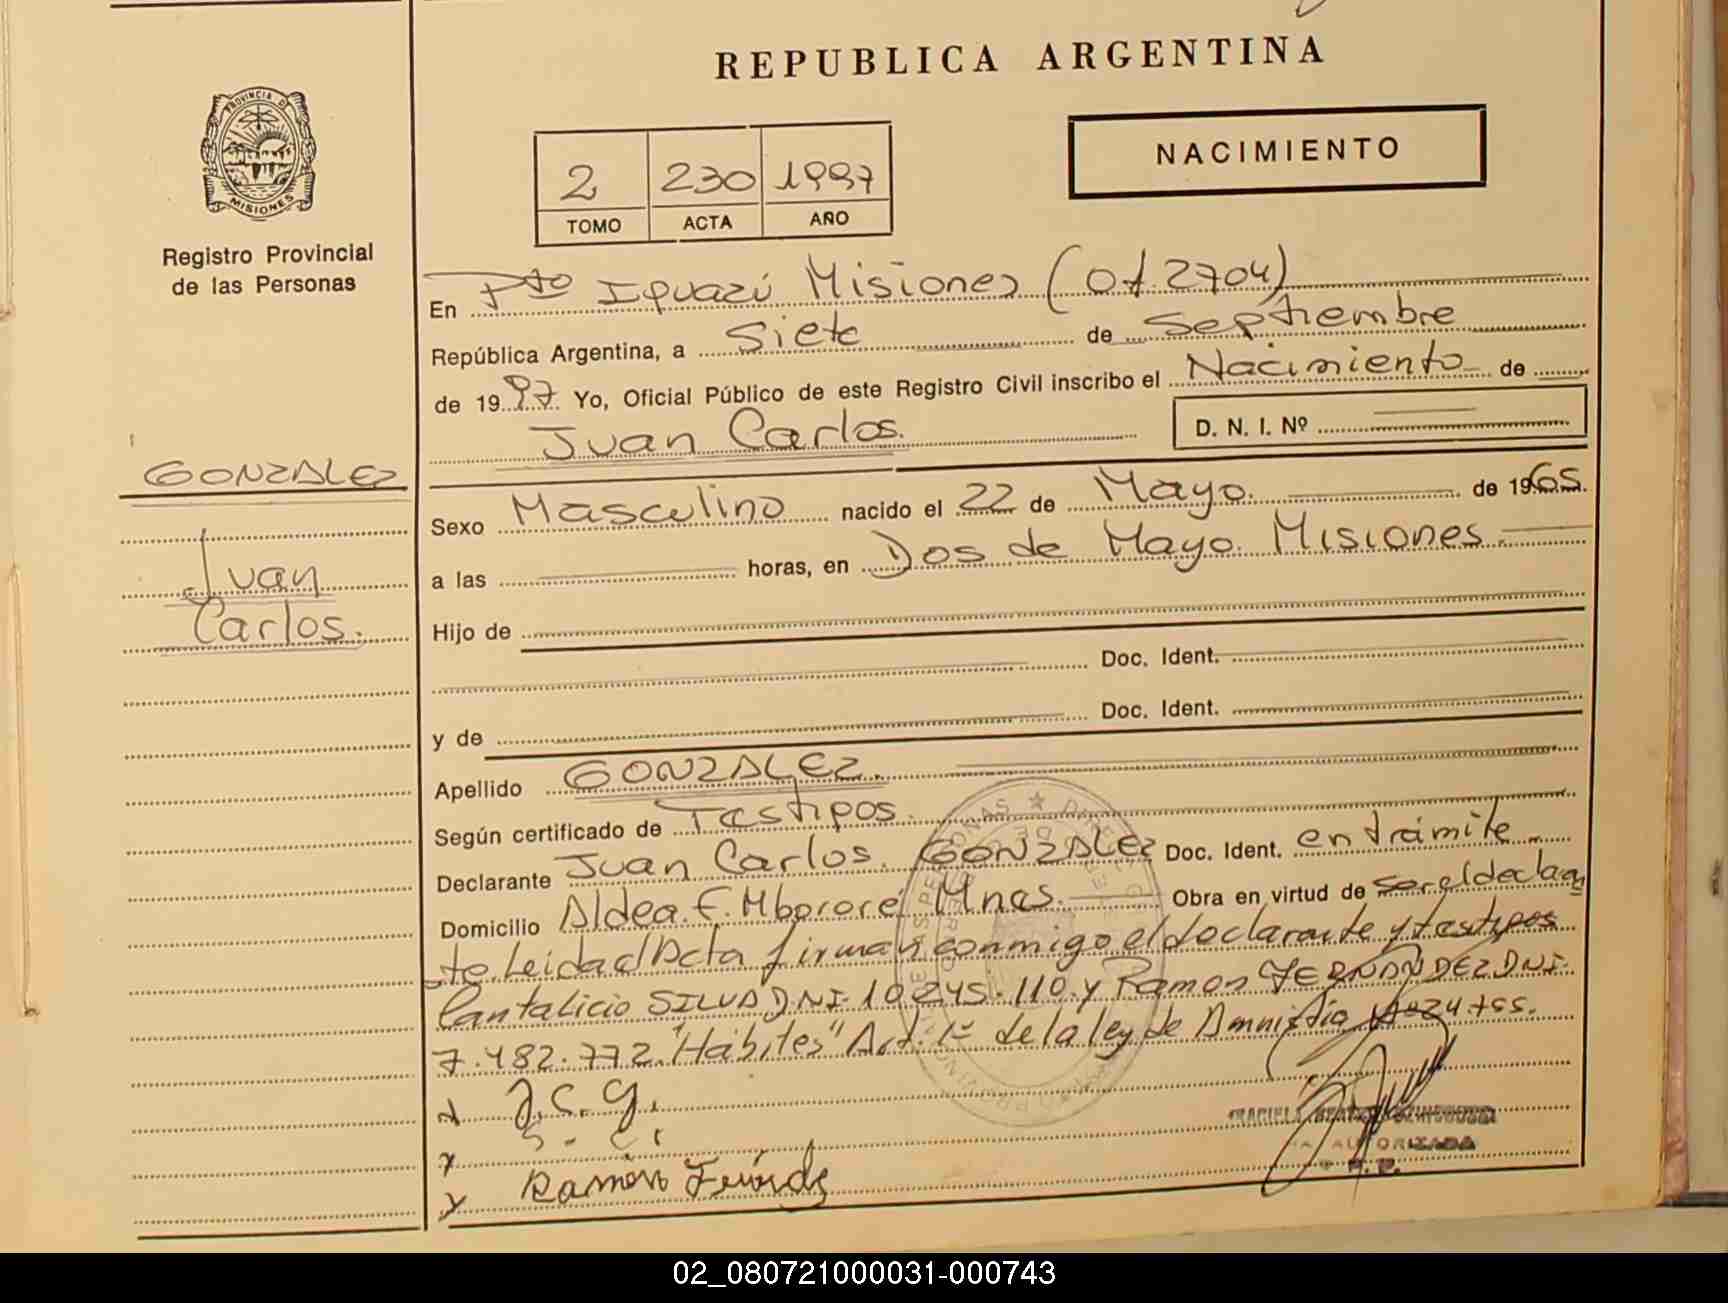 REPUBLICA ARGENTINA
PROVINCIA DE
MISIONES
Registro Provincial
de las Personas
NACIMIENTO
2 230 1997
TOMO ACTA AÑO
En Pto Iguazú Misiones (Of. 2704)
República Argentina, a Siete de Septiembre
de 1997 Yo, Oficial Público de este Registro Civil inscribo el Nacimiento de
Juan Carlos. D. N. I. Nº
GONZALEZ
Juan
Carlos.
Sexo Masculino nacido el 22 de Mayo. de 1965.
a las horas, en Dos de Mayo. Misiones.
Hijo de
Doc. Ident.
y de Doc. Ident.
Apellido GONZALEZ.
Según certificado de Testigos.
Declarante Juan Carlos. GONZALEZ Doc. Ident. en trámite
Domicilio Aldea. F. Mbororé Mnes. Obra en virtud de ser el declaran
te. Leida el Acta firman conmigo el declarante y testigos
Pantalicio SILVA DNI. 10.245.110. y Ramon FERNANDEZ DNI.
7.482.772. "Hábiles" Art. 1º de la ley de Amnistia
J. C. G.
S. C.
Ramón
AUTORIZADA
R. P.
02_080721000031-000743